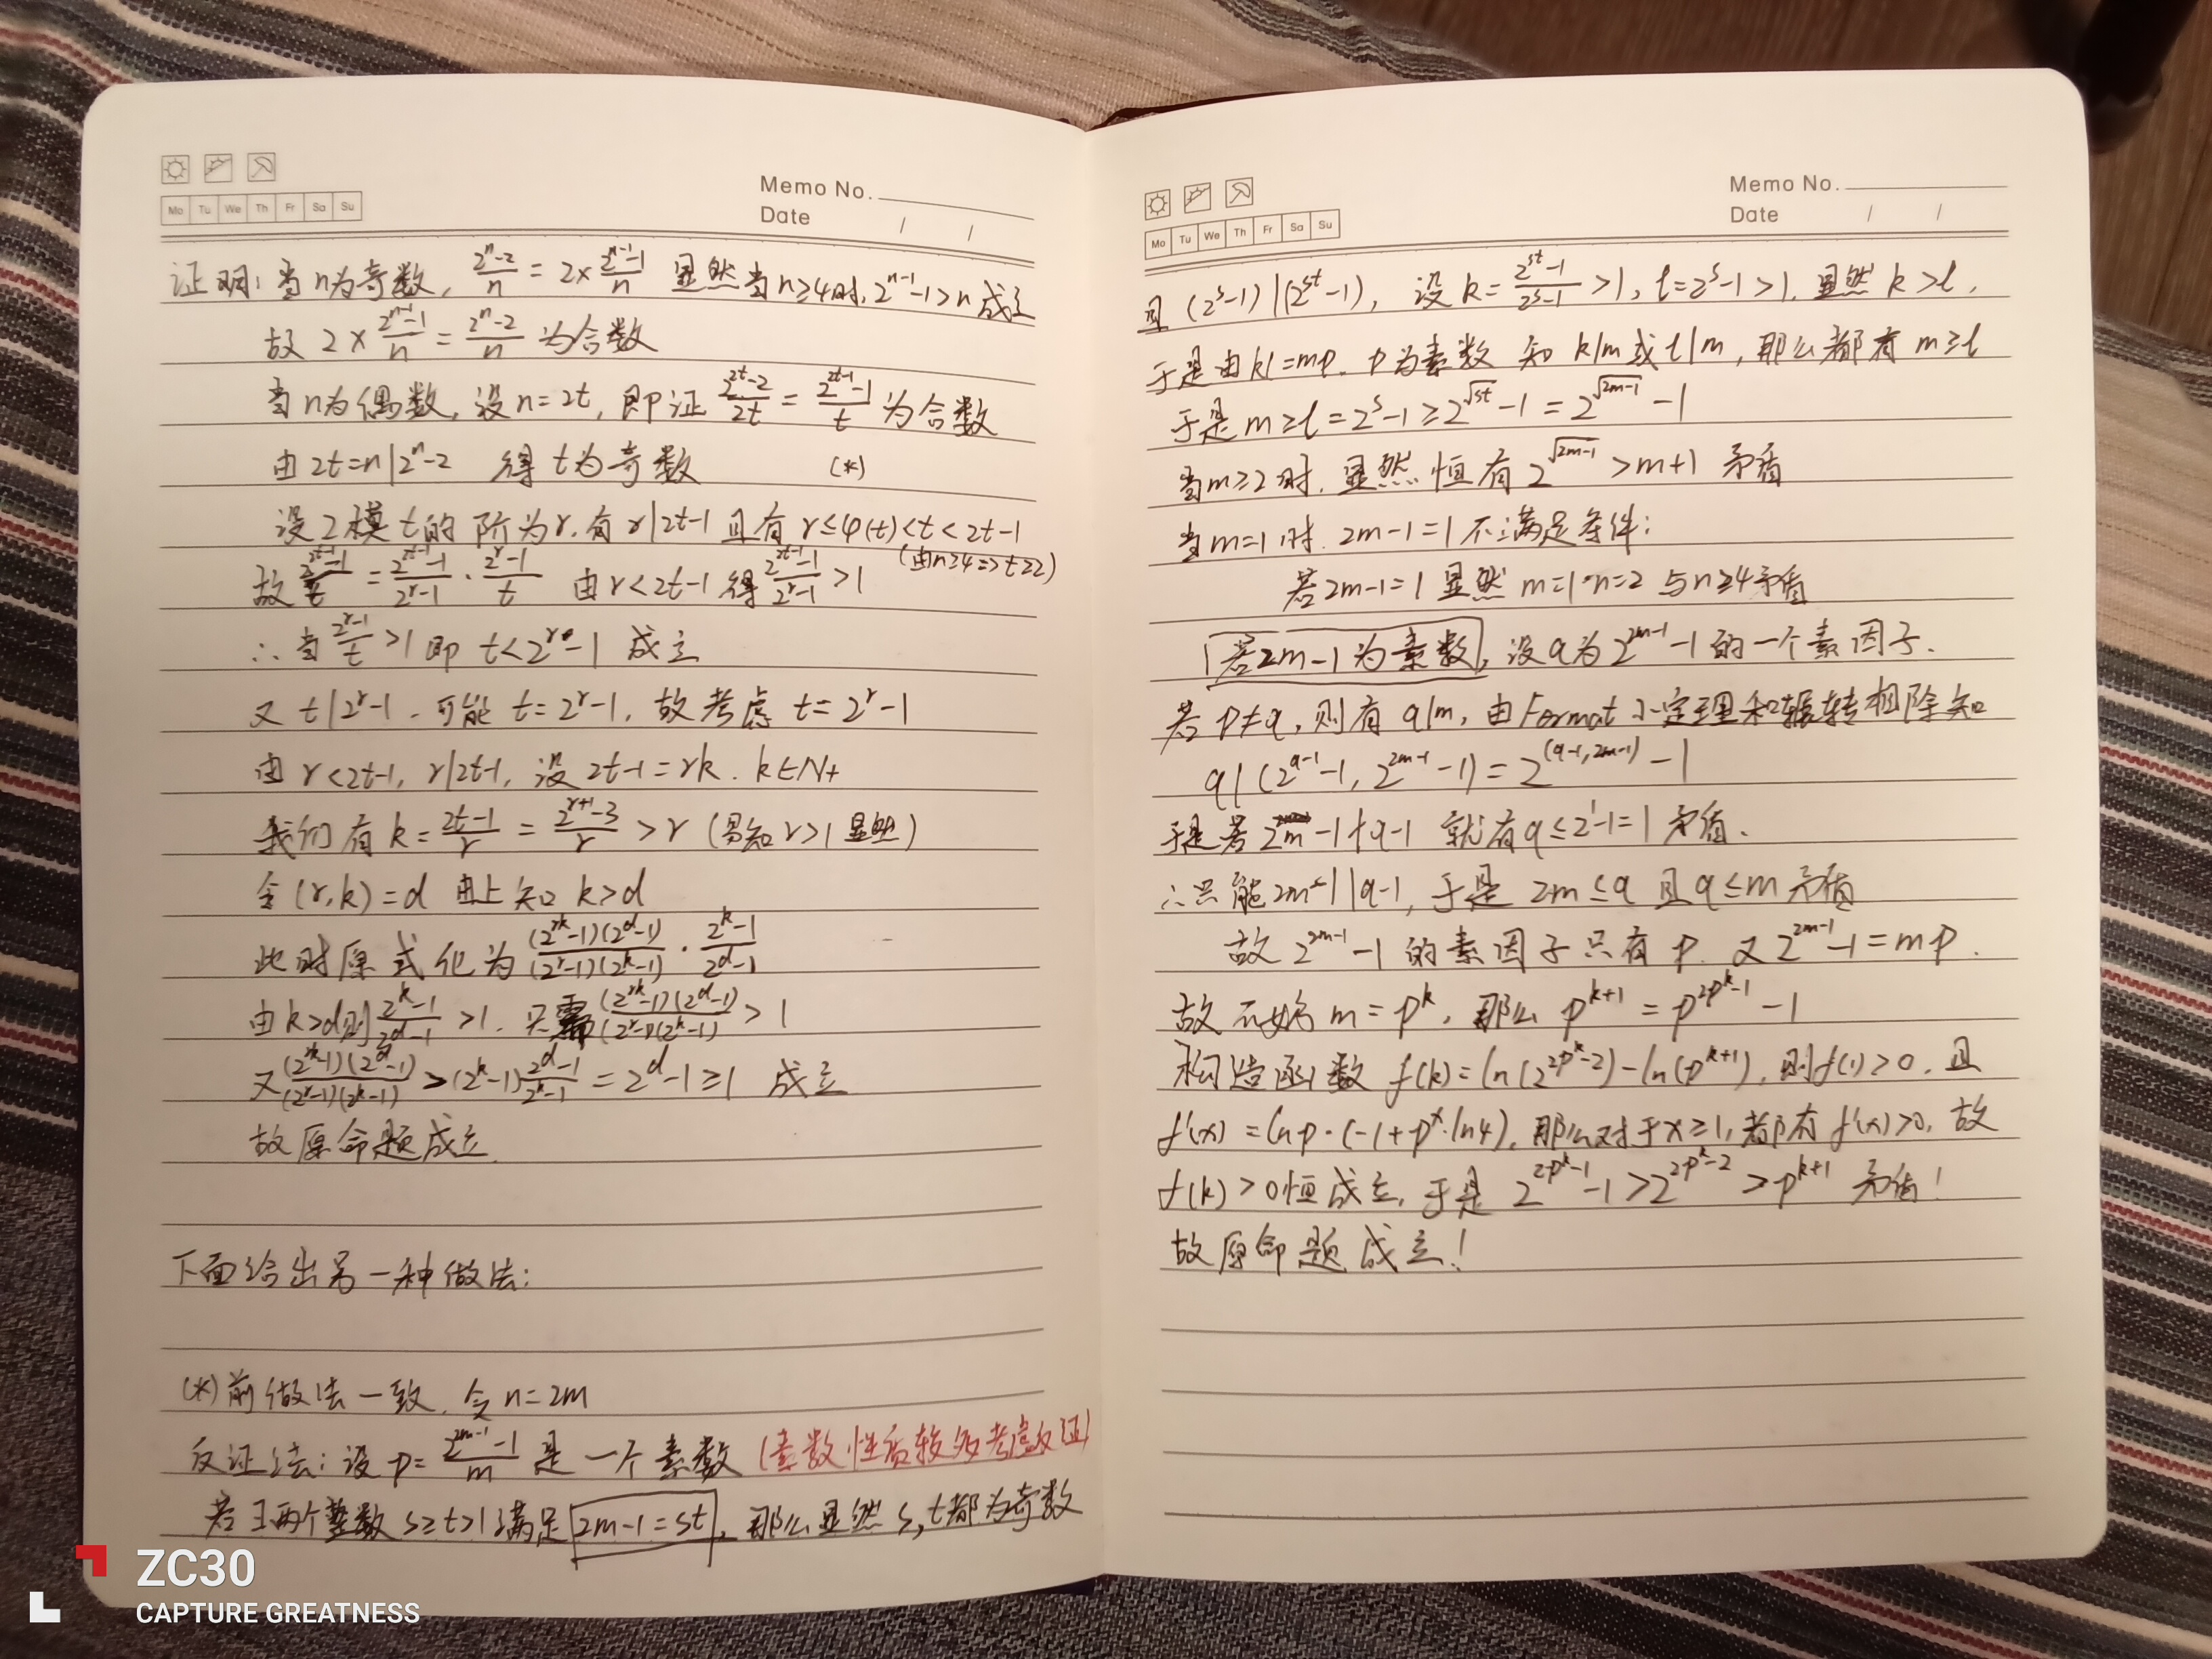 Memo No.
Date / /
Mo Tu We Th Fr Sa Su
证明：当n为奇数，(2^n-2)/n = 2×(2^(n-1)-1)/n 显然当n≥4时，2^(n-1)-1>n 成立
故 2×(2^(n-1)-1)/n = (2^n-2)/n 为合数
当n为偶数，设n=2t，即证 (2^(2t)-2)/2t = (2^(2t-1)-1)/t 为合数
由 2t=n|2^n-2 得 t为奇数 (*)
设2模t的阶为r，有 r|2t-1 且有 r≤φ(t)<t<2t-1
(由n≥4=>t≥2)
故 (2^(2t-1)-1)/t = (2^(2t-1)-1)/(2^r-1) · (2^r-1)/t 由r<2t-1 得 (2^(2t-1)-1)/(2^r-1) >1
∴当 (2^r-1)/t >1 即 t<2^r-1 成立
又 t|2^r-1，可能 t=2^r-1，故考虑 t=2^r-1
由 r<2t-1, r|2t-1, 设 2t-1=rk. k∈N+
我们有 k=(2t-1)/r = (2^(r+1)-3)/r >r (易知r>1显然)
令 (r,k)=d 由上知 k>d
此时原式化为 (2^(rk)-1)(2^d-1)/((2^r-1)(2^k-1)) · (2^k-1)/(2^d-1)
由k>d则 (2^k-1)/(2^d-1) >1. 只需 (2^(rk)-1)(2^d-1)/((2^r-1)(2^k-1)) >1
又 (2^(rk)-1)(2^d-1)/((2^r-1)(2^k-1)) >(2^k-1)(2^d-1)/(2^k-1) =2^d-1≥1 成立
故原命题成立.
下面给出另一种做法：
(*)前做法一致，令 n=2m
反证法：设 p=(2^(2m-1)-1)/m 是一个素数 (素数性质较多考虑反证)
若∃两个整数 s≥t>1 满足 2m-1=st，那么显然 s,t都为奇数
Memo No.
Date / /
Mo Tu We Th Fr Sa Su
且 (2^s-1)|(2^(st)-1)，设 k=(2^(st)-1)/(2^s-1) >1, l=2^s-1>1. 显然 k>l.
于是由kl=mp. p为素数 知 k|m或l|m，那么都有 m≥l
于是 m≥l=2^s-1≥2^√(st)-1=2^√(2m-1)-1
当m≥2时，显然恒有 2^√(2m-1)>m+1 矛盾
当m=1时. 2m-1=1 不满足条件；
若2m-1=1 显然 m=1·n=2 与n≥4矛盾
若2m-1为素数，设q为 2^(2m-1)-1 的一个素因子.
若 p≠q，则有 q|m，由Format 小定理和辗转相除知
q|(2^(q-1)-1, 2^(2m-1)-1)=2^((q-1,2m-1))-1
于是若 2m-1∤q-1 就有 q≤2^1-1=1 矛盾.
∴只能 2m-1|q-1，于是 2m≤q 且 q≤m 矛盾
故 2^(2m-1)-1 的素因子只有 p. 又 2^(2m-1)-1=mp.
故不妨 m=p^k，那么 p^(k+1)=p^(2p^k-1)-1
构造函数 f(k)=ln(2^(2p^k-2))-ln(p^(k+1))，则f(1)>0，且
f'(x)=lnp·(-1+p^x·ln4)，那么对于x≥1，都有 f'(x)>0，故
f(k)>0恒成立，于是 2^(2p^k-1)-1>2^(2p^k-2)>p^(k+1) 矛盾！
故原命题成立！
ZC30
CAPTURE GREATNESS